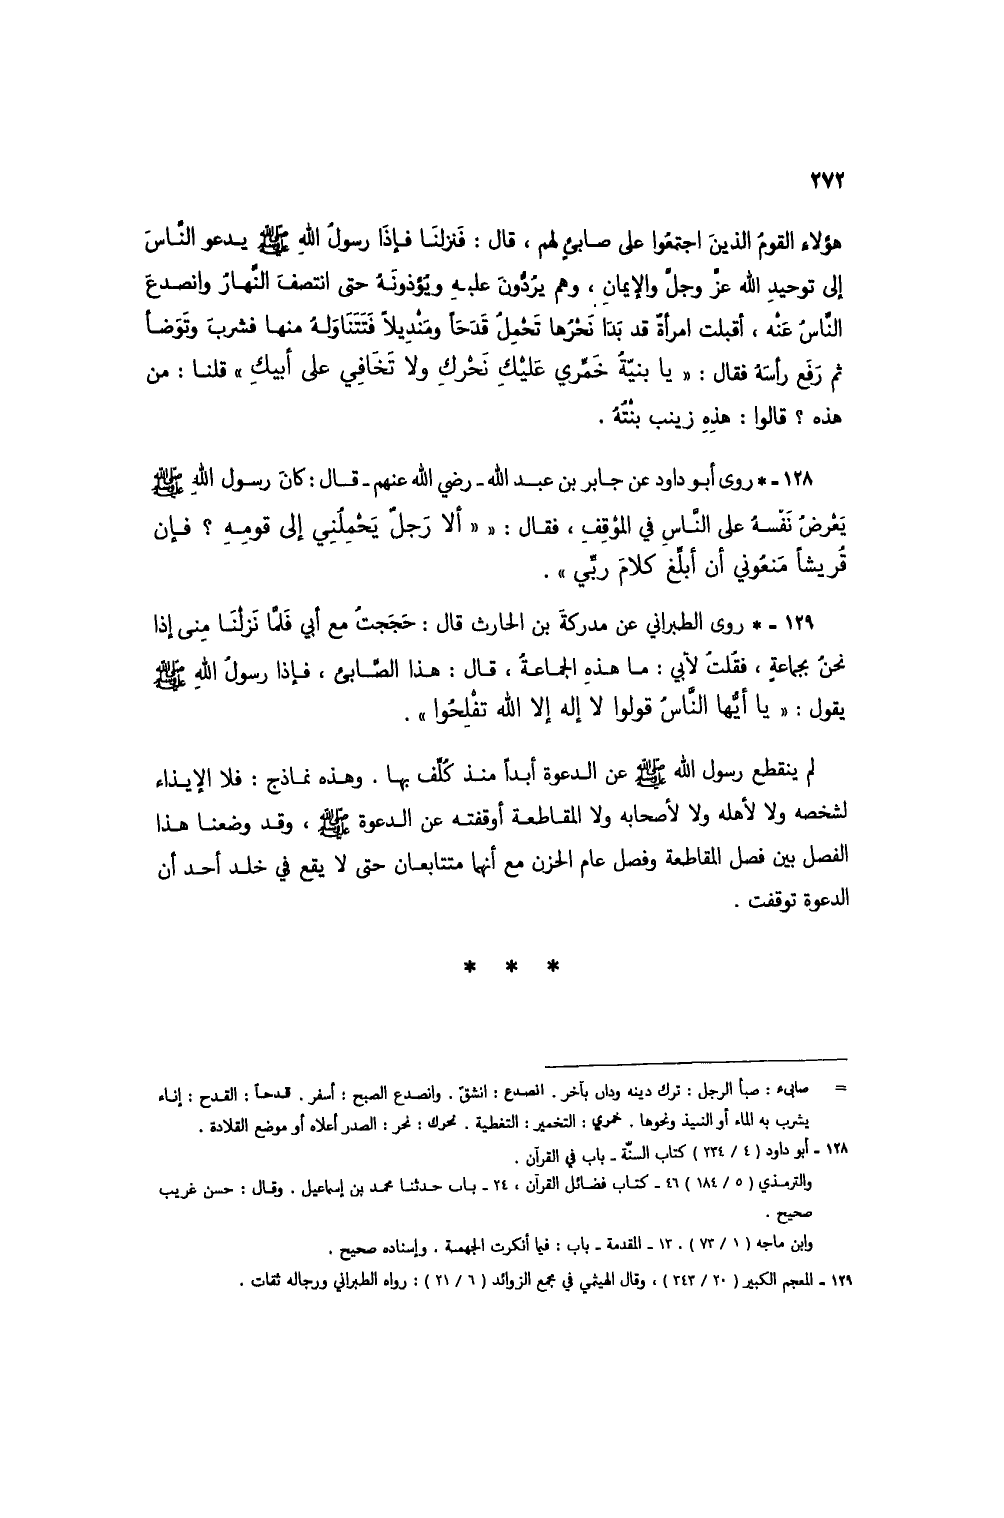 ٢٧٢
هؤلاء القومُ الذينَ اجتمعُوا على صابئٍ لهم ، قال : فَنزلنَا فإذَا رسولُ اللهِ ﷺ يدعو النَّاسَ
إلى توحيدِ الله عزَّ وجلَّ والإيمانِ ، وهم يرُدُّونَ عليهِ ويُؤذونَهُ حتى انتصفَ النَّهارُ وانصدعَ
النَّاسُ عَنْه ، أقبلت امرأةٌ قد بَدَا نَحْرُها تَحْمِلُ قَدَحَاً ومَنْدِيلاً فَتَتَنَاوَلهُ منها فشربَ وتَوَضأ
ثم رَفَع رأسَهُ فقال : « يا بنيّةُ خَمِّري عَليْكِ نَحْركِ ولا تَخَافِي على أبيكِ » قلنا : من
هذه ؟ قالوا : هذهِ زينب بنْتُهُ .
١٢٨ - * روى أبو داود عن جابر بن عبد الله - رضي الله عنهم - قال : كانَ رسول اللهِ ﷺ
يَعْرضُ نَفْسهُ على النَّاسِ في المَوْقِفِ ، فقال : « « ألا رَجلٌ يَحْمِلُنِي إلى قومِهِ ؟ فإن
قُريشاً مَنعُوني أن أبلِّغ كلامَ ربِّي » .
١٢٩ - * روى الطبراني عن مدركةَ بن الحارث قال : حَجَجتُ مع أبي فَلمَّا نَزلْنَا مِنى إذا
نحنُ بجماعةٍ ، فقُلتُ لأبي : ما هذهِ الجماعةُ ، قال : هذا الصَّابئ ، فإذا رسولُ اللهِ ﷺ
يقول : « يا أيُّها النَّاسُ قولوا لا إله إلا الله تفْلِحُوا » .
لم ينقطع رسول الله ﷺ عن الدعوة أبداً منذ كُلِّف بها . وهذه نماذج : فلا الإيذاء
لشخصه ولا لأهله ولا لأصحابه ولا المقاطعة أوقفته عن الدعوة ﷺ ، وقد وضعنا هذا
الفصل بين فصل المقاطعة وفصل عام الحزن مع أنهما متتابعان حتى لا يقع في خلد أحد أن
الدعوة توقفت .
* * *
= صابىء : صبأ الرجل : ترك دينه ودان بآخر . انصدع : انشقّ . وانصدع الصبح : أسفر . قدحاً : القدح : إناء
يشرب به الماء أو النبيذ ونحوها . خمري : التخمير : التغطية . نحرك : نحر : الصدر أعلاه أو موضع القلادة .
١٢٨ - أبو داود ( ٤ / ٢٣٤ ) كتاب السنّة - باب في القرآن .
والترمذي ( ٥ / ١٨٤ ) ٤٦ - كتاب فضائل القرآن ، ٢٤ - باب حدثنا محمد بن إسماعيل . وقال : حسن غريب
صحيح .
وابن ماجه ( ١ / ٧٣ ) . ١٣ - المقدمة - باب : فيما أنكرت الجهمية . وإسناده صحيح .
١٢٩ - المعجم الكبير ( ٢٠ / ٣٤٣ ) ، وقال الهيثمي في مجمع الزوائد ( ٦ / ٢١ ) : رواه الطبراني ورجاله ثقات .